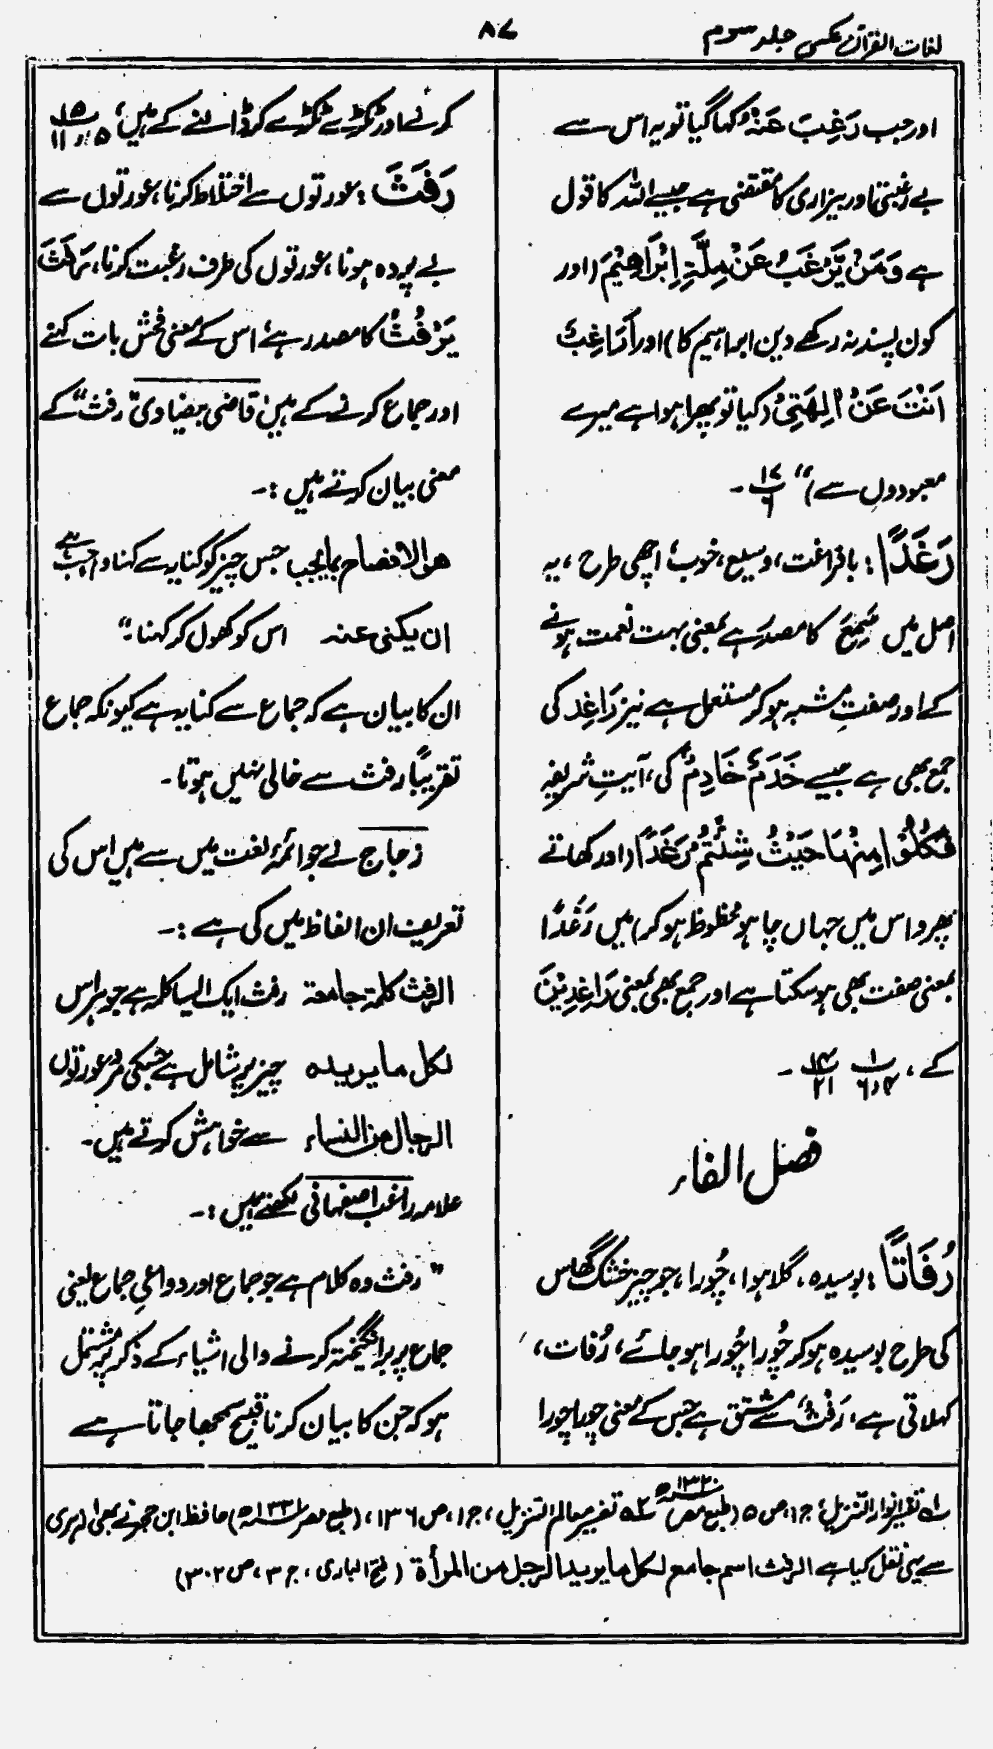 لغات القرآن عکسی جلد سوم
۸۷
اور جب رَغِبَ عَنْہُ کہا گیا تو یہ اس سے
بے رغبتی اور بیزاری کا مقتضی ہے جیسے اللہ کا قول
ہے وَمَنْ يَّرْغَبُ عَنْ مِلَّةِ اِبْرَاهِيْمَ (اور
کون پسند نہ رکھے دین ابراہیم کا) اور اَرَاغِبٌ
اَنْتَ عَنْ اٰلِهَتِيْ (کیا تو پھرا ہوا ہے میرے
معبودوں سے)“ ۱۶/۶ ۔
رَغَدًا: بافراغت، وسیع، خوب، اچھی طرح، یہ
اصل میں سَمِعَ کا مصدر ہے بمعنی بہت نعمت ہونے
کے اور صفتِ مشبہ ہو کر مستعمل ہے نیز رَاغِد کی
جمع بھی ہے جیسے خَدَمٌ خَادِمٌ کی، آیتِ شریفہ
فَكُلُوْا مِنْهَا حَيْثُ شِئْتُمْ رَغَدًا (اور کھاتے
پھرو اس میں جہاں چاہو محظوظ ہو کر) میں رَغَدًا
بمعنی صفت بھی ہو سکتا ہے اور جمع بھی بمعنی رَاغِدِیْنَ
کے، ۱/۶،۴ ۱۴/۲۱ ۔
فصل الفاء
رُفَاتًا: بوسیدہ، گلا ہوا، چُورا، جو چیز خشک گھاس
کی طرح بوسیدہ ہو کر چُورا چُورا ہو جائے، رُفات،
کہلاتی ہے، رَفْتٌ سے مشتق ہے جس کے معنی چورا چورا
کرنے اور ٹکڑے ٹکڑے کر ڈالنے کے ہیں، ۱۵/۵،۱۱
رَفَثَ: عورتوں سے اختلاط کرنا، عورتوں سے
بے پردہ ہونا، عورتوں کی طرف رغبت کرنا، رَفَثَ
يَرْفُثُ کا مصدر ہے، اس کے معنی فحش بات کہنے
اور جماع کرنے کے ہیں، قاضی بیضاویؒ ”رفث“ کے
معنی بیان کرتے ہیں:۔
هو الافصاح بما يجب جس چیز کو کنایہ سے کہنا واجب ہے
ان يكنى عنه اس کو کھول کر کہنا۔“
ان کا بیان ہے کہ جماع سے کنایہ ہے کیونکہ جماع
تقریباً رفث سے خالی نہیں ہوتا۔
زجاج نے جو ائمۂ لغت میں سے ہیں اس کی
تعریف ان الفاظ میں کی ہے:۔
الرفث كلمة جامعة رفث ایک ایسا کلمہ ہے جو ہر اس
لكل ما يريده چیز پر شامل ہے جس کی مرد عورتوں
الرجال من النساء سے خواہش کرتے ہیں۔
علامہ راغب اصفہانی لکھتے ہیں:۔
”رفث وہ کلام ہے جو جماع اور دواعیِ جماع یعنی
جماع پر برانگیختہ کرنے والی اشیاء کے ذکر پر مشتمل
ہو کہ جن کا بیان کرنا قبیح سمجھا جاتا ہے
لہ تفسیر انوار التنزیل، ج ۱، ص ۵ (طبع مصر ۱۳۲۰ھ) لہ تفسیر معالم التنزیل، ج ۱، ص ۱۳۶، (طبع مصر ۱۳۳۱ھ) حافظ ابن حجر نے بھی ازہری
سے یہی نقل کیا ہے الرفث اسم جامع لكل ما يريد الرجل من المرأة (فتح الباری، ج ۳، ص ۳۰۲)